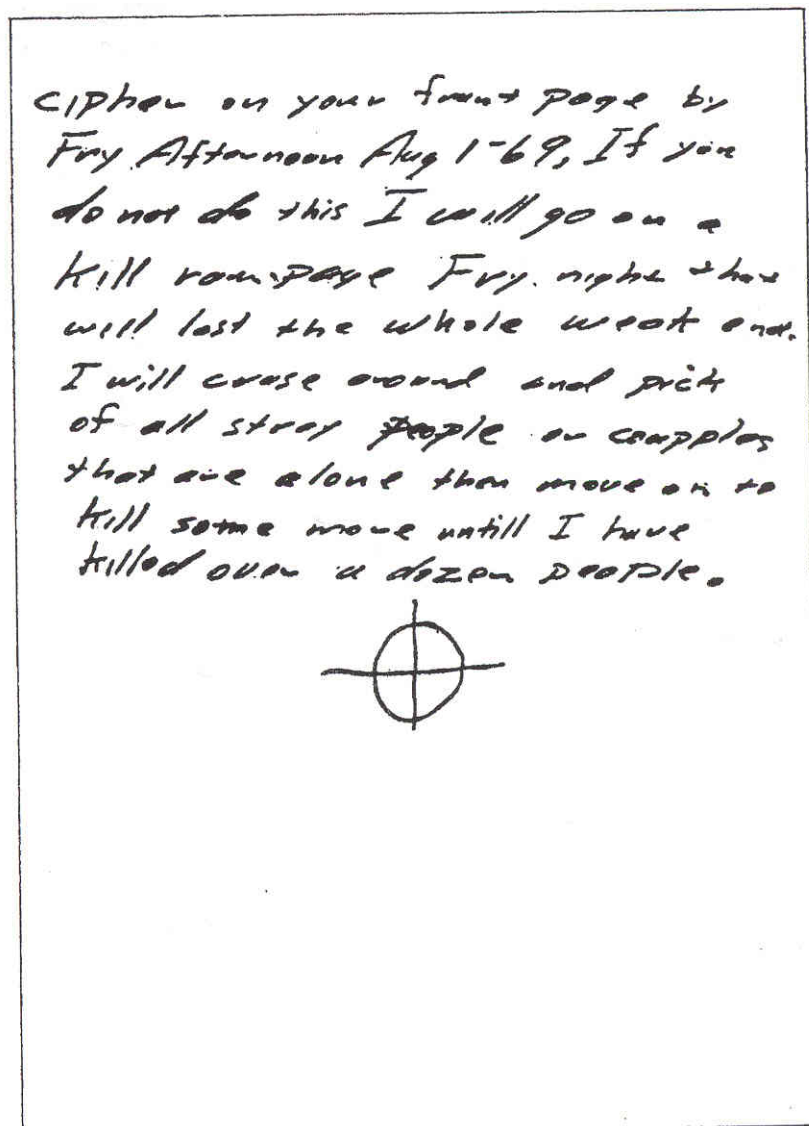 cipher on your front page by
Fry Afternoon Aug 1-69, If you
do not do this I will go on a
kill rampage Fry. night that
will last the whole weak end.
I will cruse around and pick
of all stray people or coupples
that are alone then move on to
kill some more untill I have
killed over a dozen people.